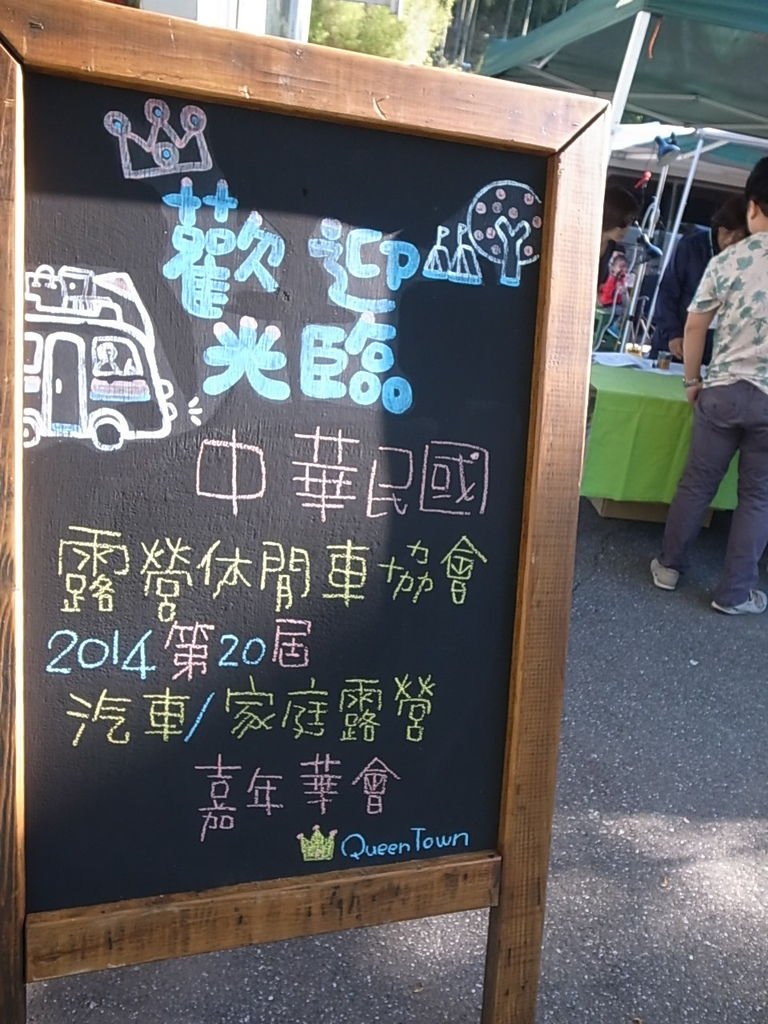 歡迎
光臨
中華民國
露營休閒車協會
2014第20屆
汽車/家庭露營
嘉年華會
Queen Town